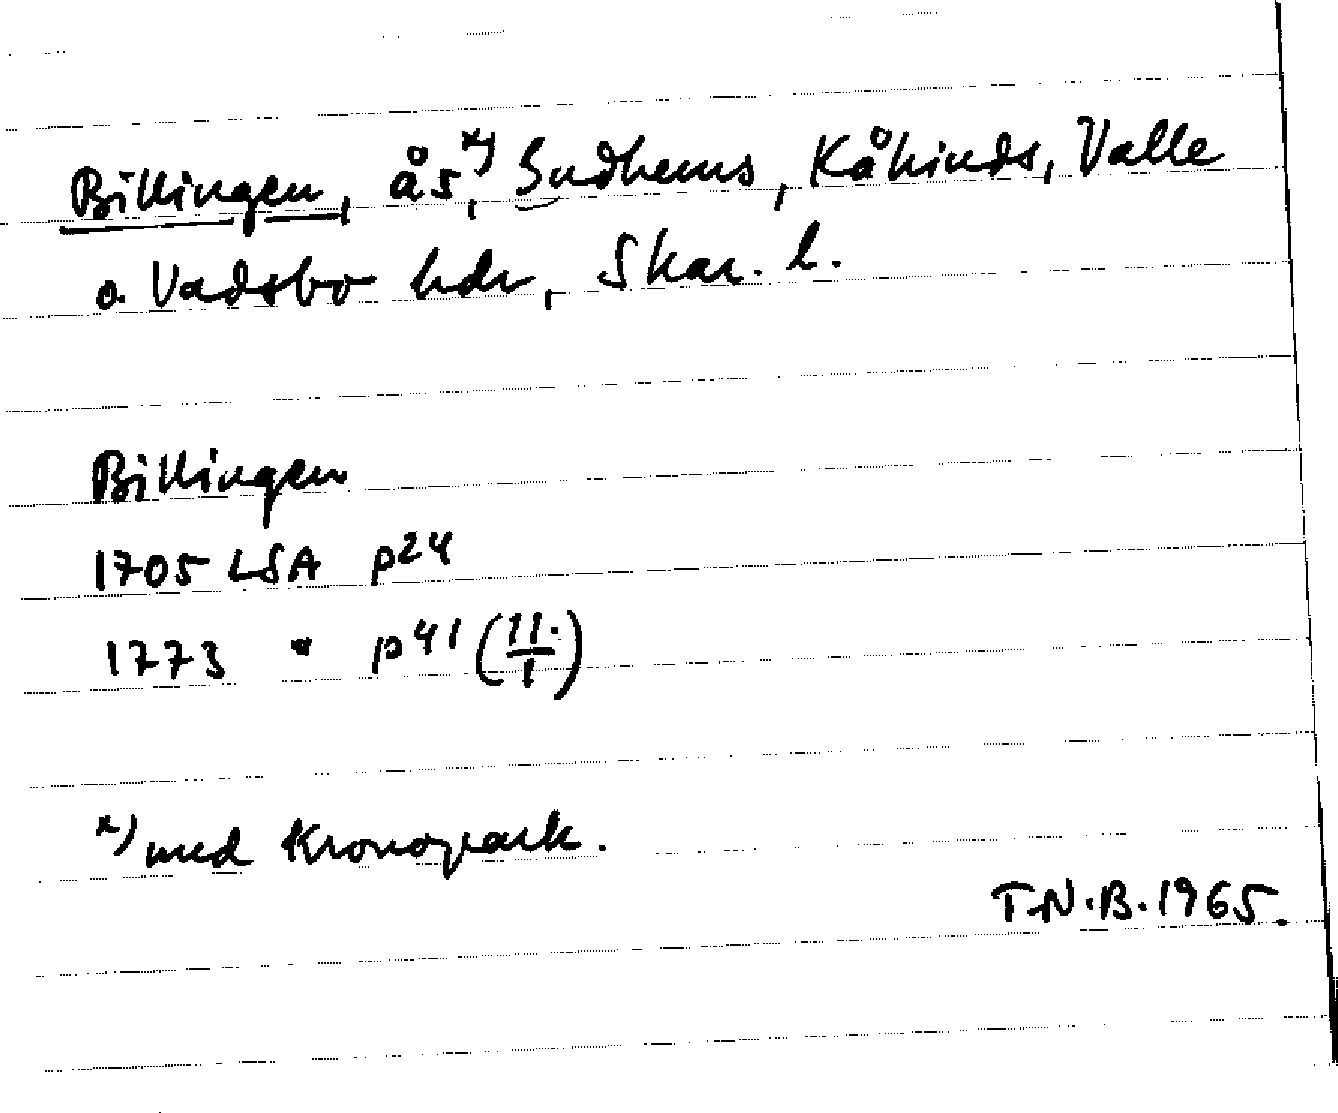 Billingen, ås,x) Gudhems, Kåkinds, Valle
o. Vadsbo hdr, Skar. l.
Billingen
1705 LSA p24
1773 " p41 (11./1)
x) med Kronopark.
T.N.B. 1965.